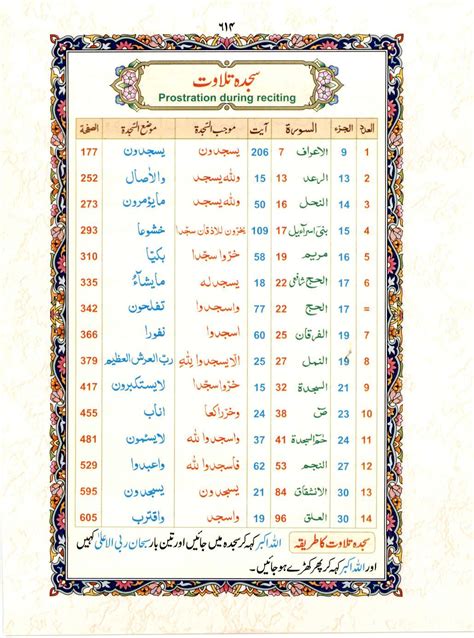 ۶۱۴
سجدہ تلاوت
Prostration during reciting
العدد الجزء السورة آیت موجب السجدة موضع السجدة الصفحة
1 9 الاعراف 7 206 یسجدون یسجدون 177
2 13 الرعد 13 15 وللہ یسجد والآصال 252
3 14 النحل 16 50 وللہ یسجد مایؤمرون 273
4 15 بنی اسرآءیل 17 109 یخرون للاذقان سجدا خشوعا 293
5 16 مریم 19 58 خروا سجدا بکیا 310
6 17 الحج شافعی 22 18 یسجد لہ مایشآء 335
= 17 الحج 22 77 واسجدوا تفلحون 342
7 19 الفرقان 25 60 اسجدوا نفورا 366
8 19 النمل 27 25 الا یسجدوا للہ رب العرش العظیم 379
9 21 السجدة 32 15 خروا سجدا لایستکبرون 417
10 23 ص 38 24 وخر راکعا اناب 455
11 24 حٰم السجدة 41 37 واسجدوا للہ لایسئمون 481
12 27 النجم 53 62 فاسجدوا للہ واعبدوا 529
13 30 الانشقاق 84 21 یسجدون یسجدون 595
14 30 العلق 96 19 واسجد واقترب 605
سجدہ تلاوت کا طریقہ اللہ اکبر کہہ کر سجدہ میں جائیں اور تین بار سبحان ربی الاعلیٰ کہیں
اور اللہ اکبر کہہ کر پھر کھڑے ہو جائیں۔